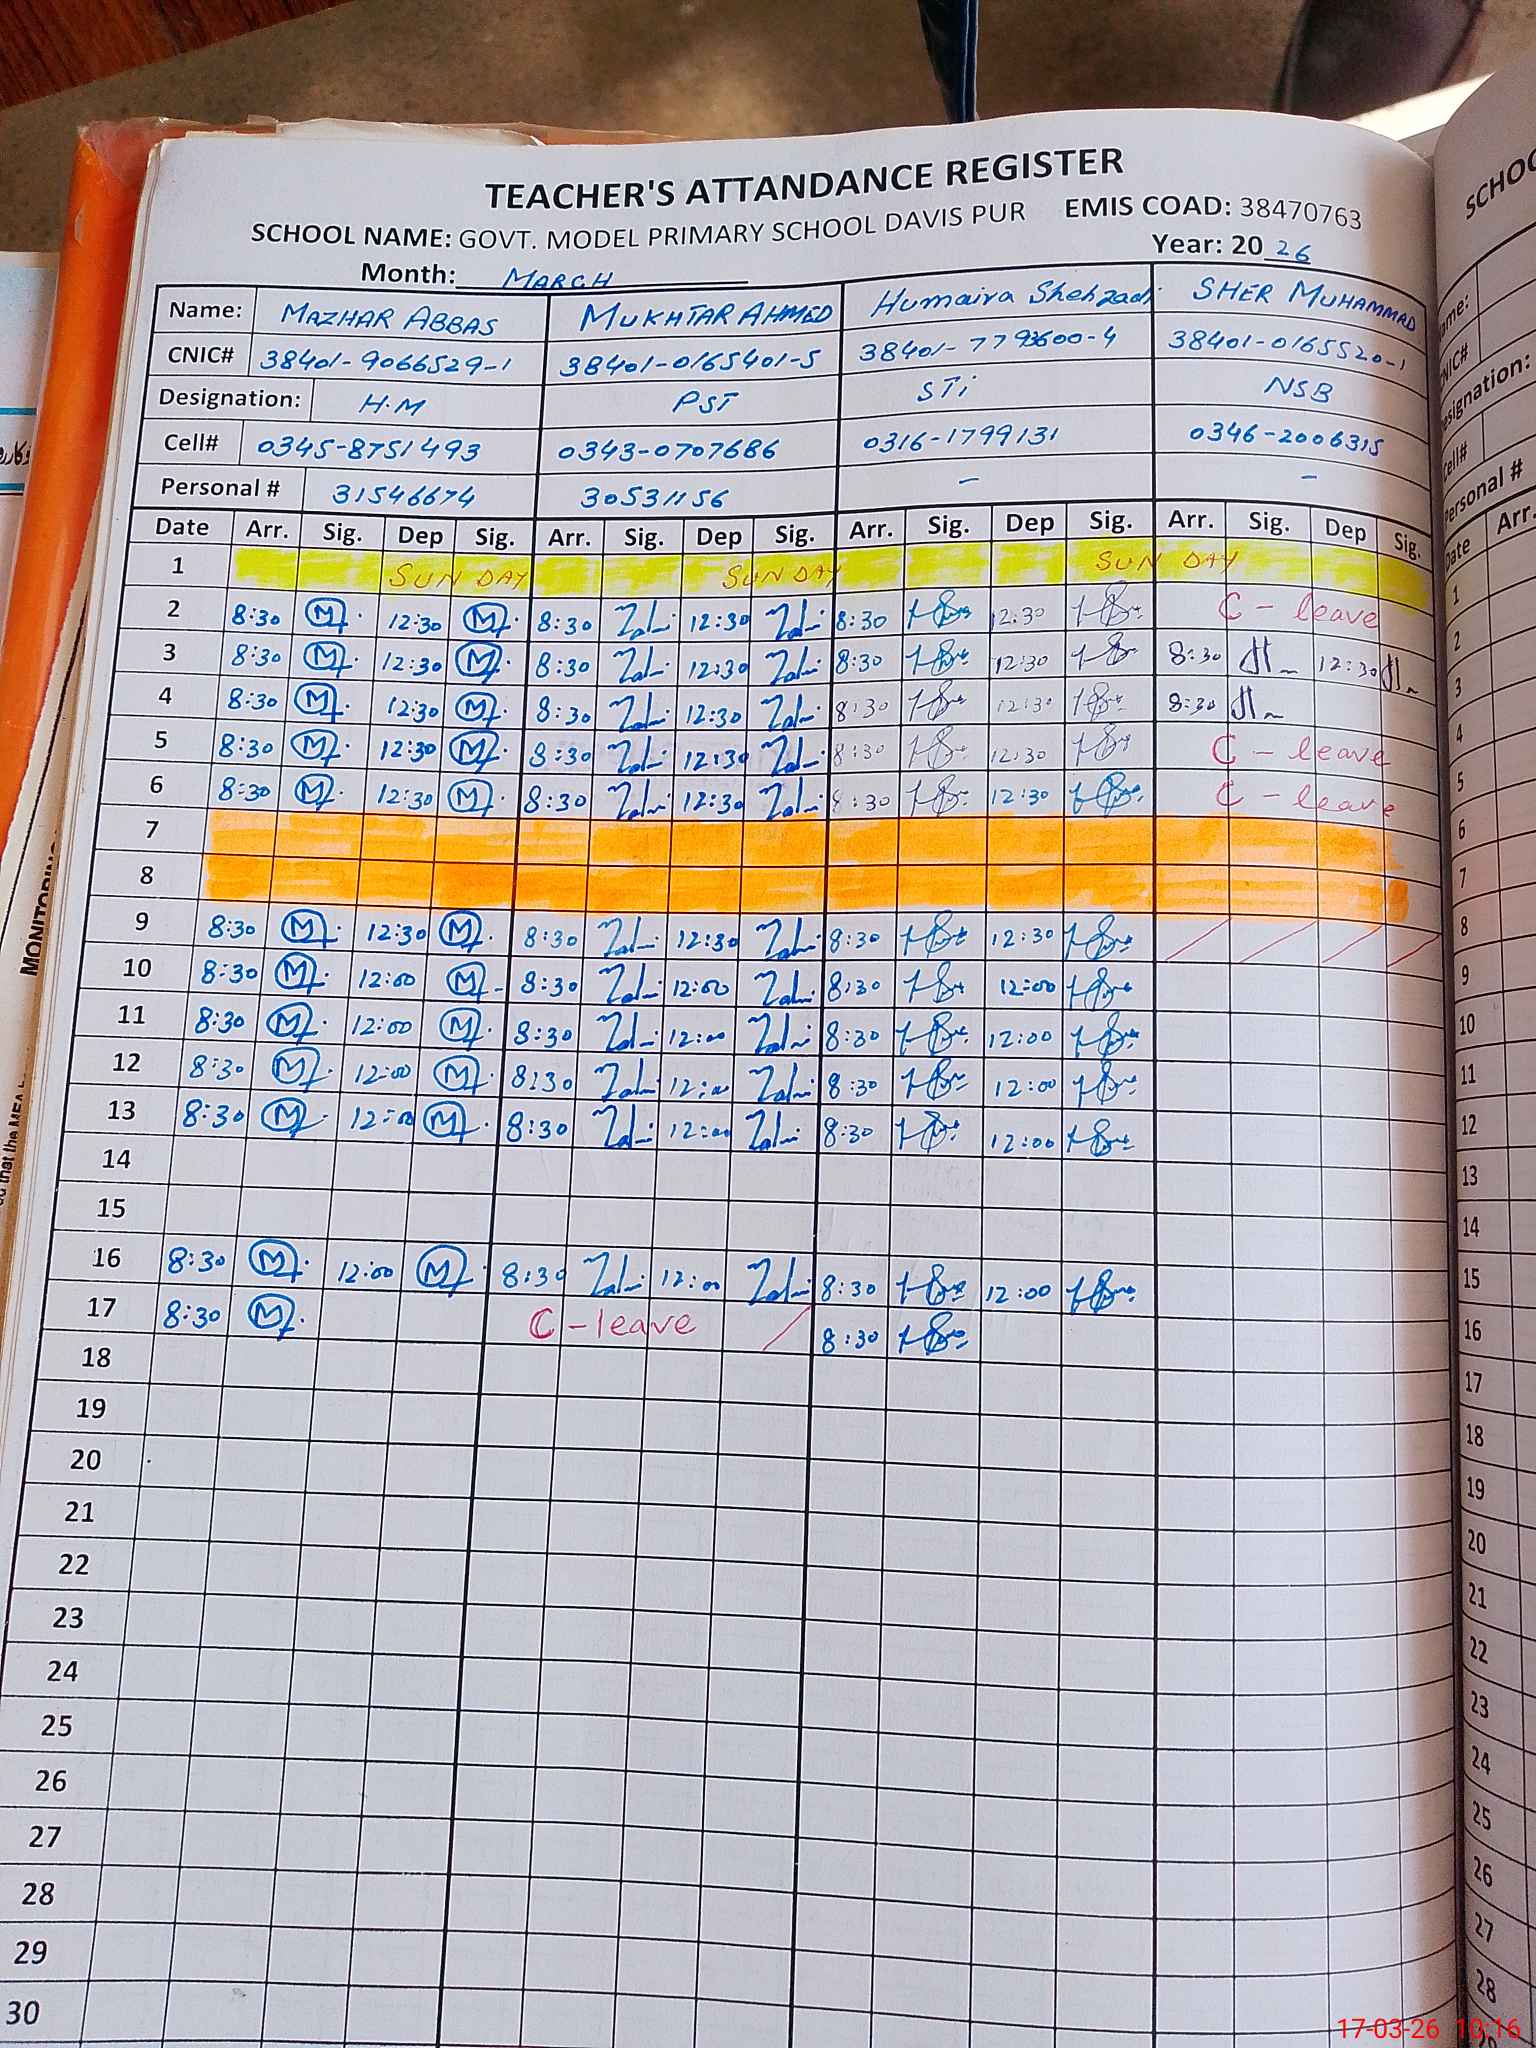 TEACHER'S ATTANDANCE REGISTER
SCHOOL NAME: GOVT. MODEL PRIMARY SCHOOL DAVIS PUR EMIS COAD: 38470763
Month: MARCH Year: 2026
Name: MAZHAR ABBAS MUKHTAR AHMED Humaira Shehzadi SHER MUHAMMAD
CNIC# 38401-9066529-1 38401-0165401-5 38401-7793600-4 38401-0165520-1
Designation: H.M PST STi NSB
Cell# 0345-8751493 0343-0707686 0316-1799131 0346-2006315
Personal # 31546674 30531156 - -
Date Arr. Sig. Dep Sig. Arr. Sig. Dep Sig. Arr. Sig. Dep Sig. Arr. Sig. Dep Sig.
1 SUNDAY SUNDAY SUNDAY
2 8:30 M 12:30 M 8:30 12:30 8:30 12:30 C-leave
3 8:30 M 12:30 M 8:30 12:30 8:30 12:30 8:30 12:30
4 8:30 M 12:30 M 8:30 12:30 8:30 12:30 8:30
5 8:30 M 12:30 M 8:30 12:30 8:30 12:30 C-leave
6 8:30 M 12:30 M 8:30 12:30 8:30 12:30 C-leave
7
8
9 8:30 M 12:30 M 8:30 12:30 8:30 12:30
10 8:30 M 12:00 M 8:30 12:00 8:30 12:00
11 8:30 M 12:00 M 8:30 12:00 8:30 12:00
12 8:30 M 12:00 M 8:30 12:00 8:30 12:00
13 8:30 M 12:00 M 8:30 12:00 8:30 12:00
14
15
16 8:30 M 12:00 M 8:30 12:00 8:30 12:00
17 8:30 M C-leave 8:30
18
19
20
21
22
23
24
25
26
27
28
29
30
SCHOO
Name:
CNIC#
Designation:
Cell#
Personal #
Date Arr.
1
2
3
4
5
6
7
8
9
10
11
12
13
14
15
16
17
18
19
20
21
22
23
24
25
26
27
28
MONITORING
that the MEA
17-03-26 10:16